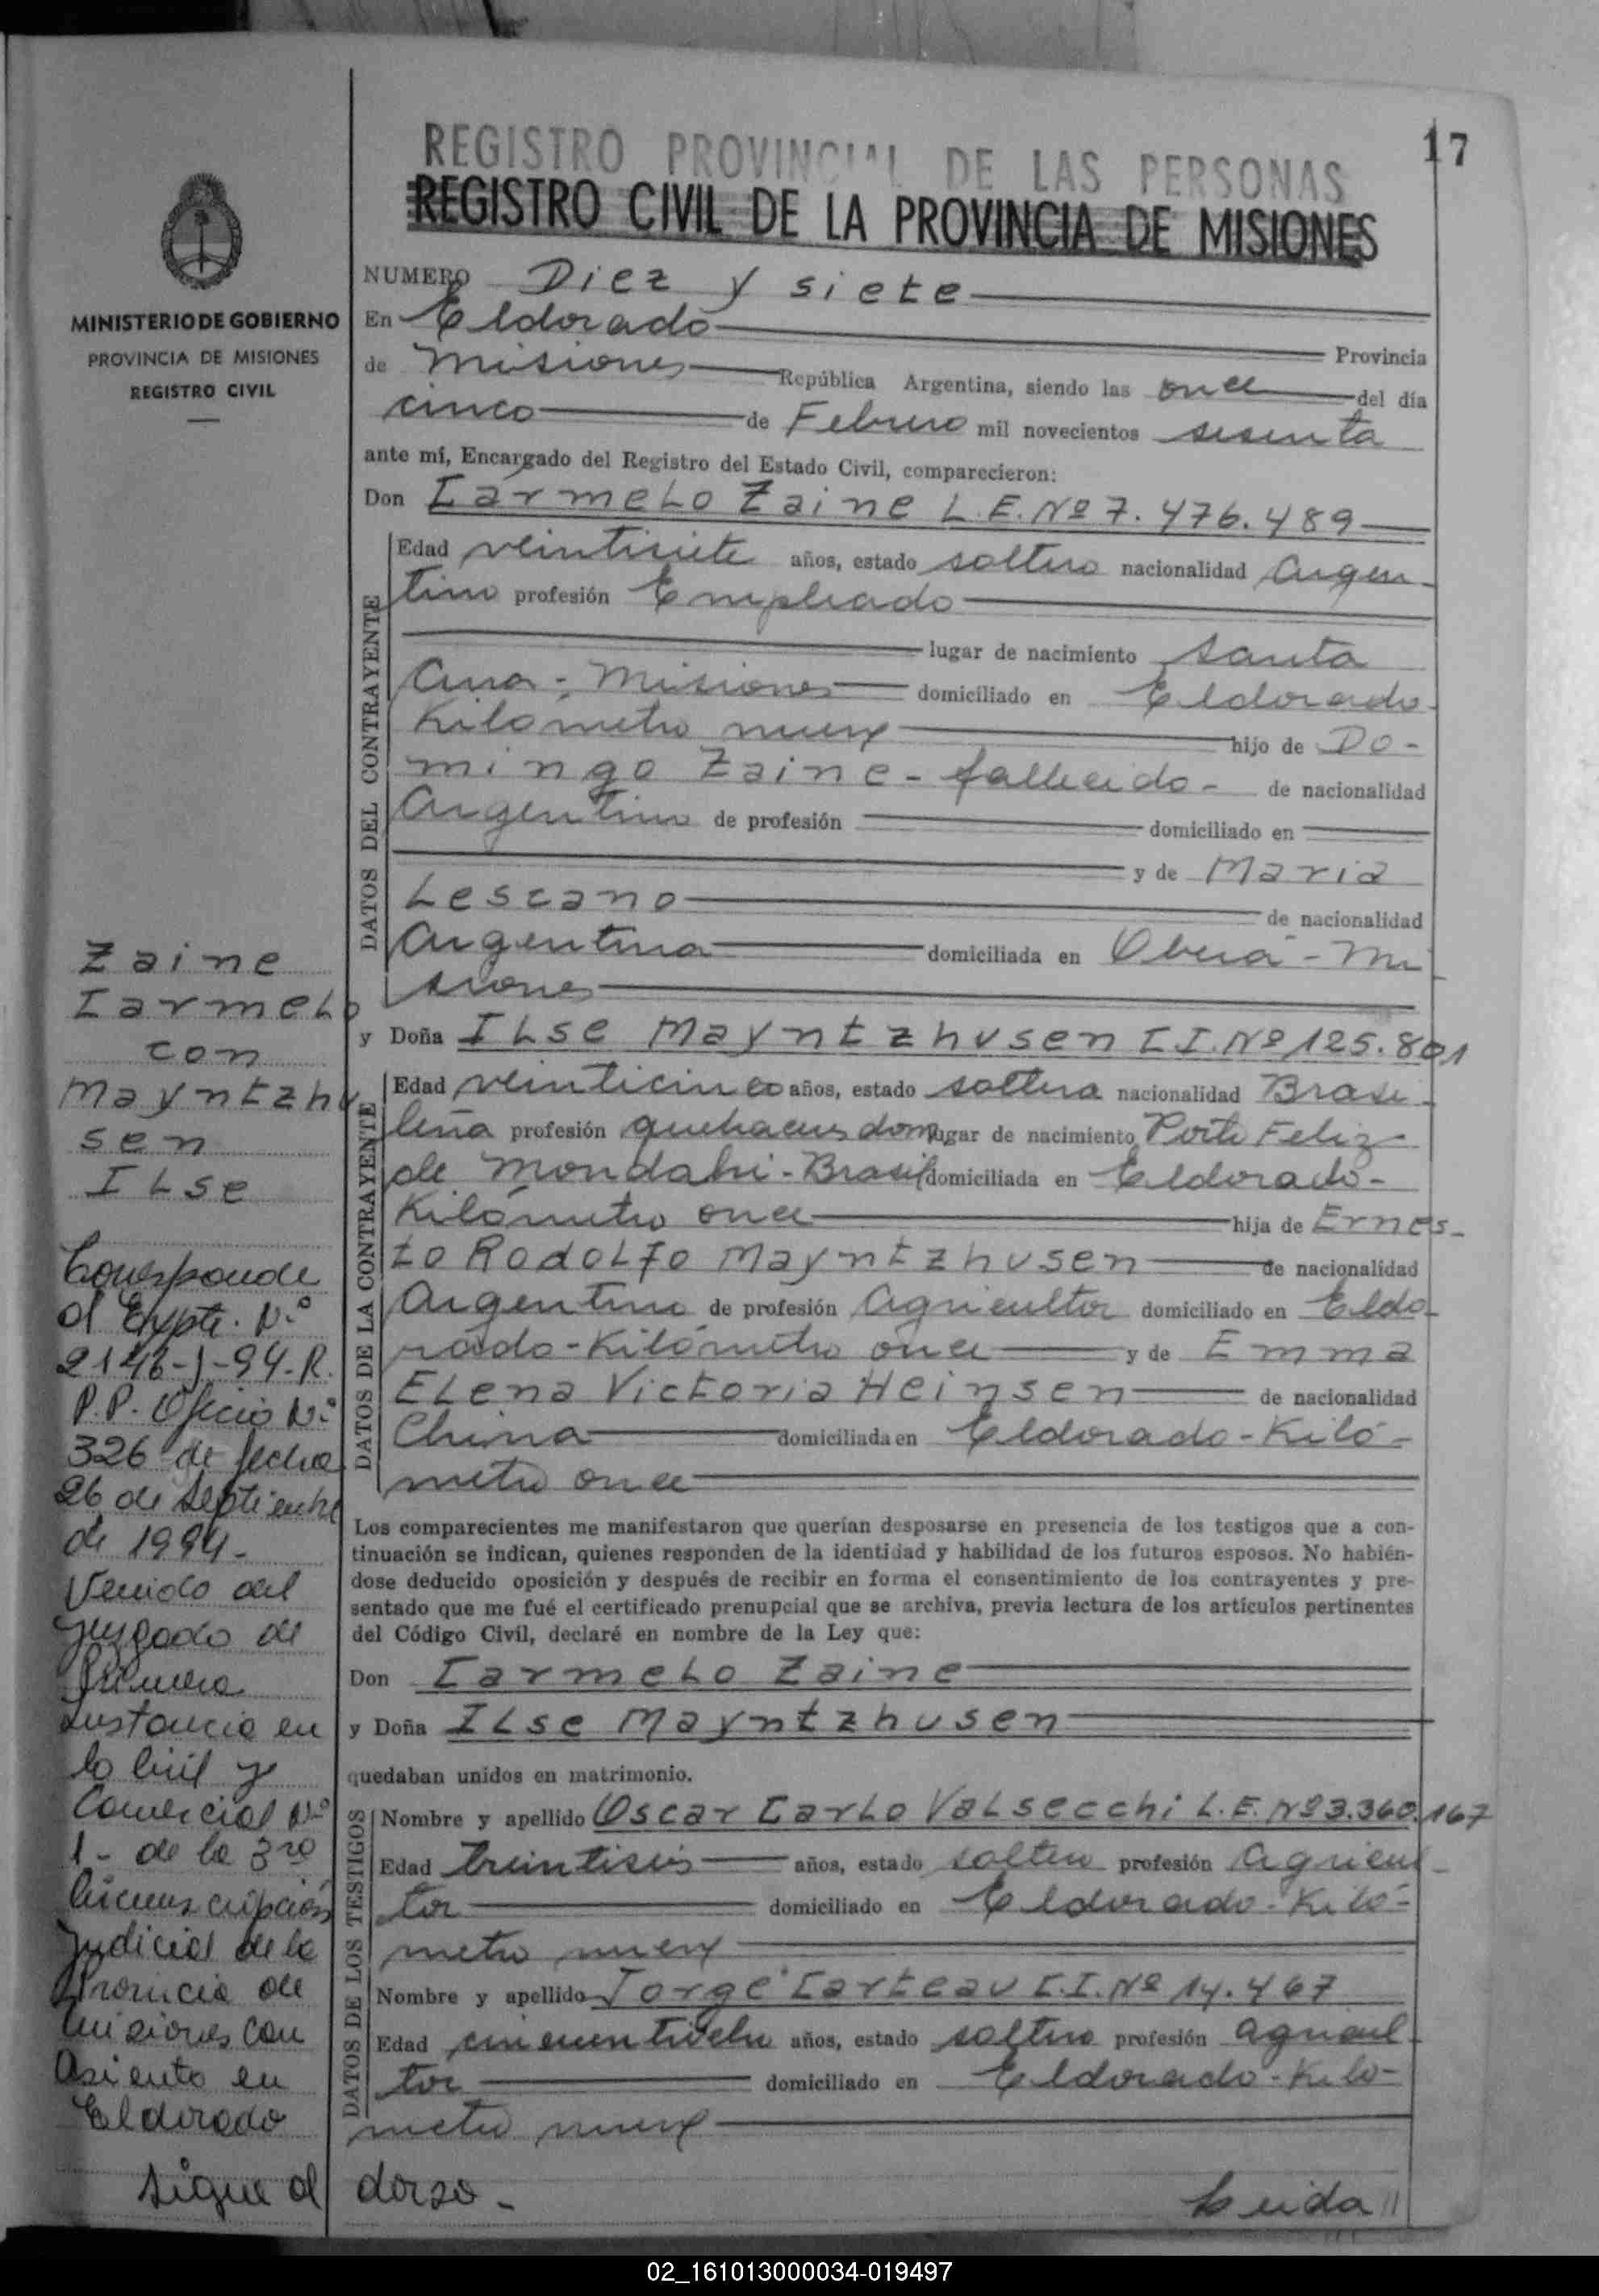 17
REGISTRO PROVINCIAL DE LAS PERSONAS
REGISTRO CIVIL DE LA PROVINCIA DE MISIONES
MINISTERIO DE GOBIERNO
PROVINCIA DE MISIONES
REGISTRO CIVIL
Zaine
Carmelo
con
Mayntzhu
sen
Ilse
Corresponde
al Expte. Nº
2146-J-94-R.
P.P. Oficio Nº
326 de fecha
26 de Septiembre
de 1994-
Venido del
Juzgado de
Primera
Instancia en
lo Civil y
Comercial Nº
1 - de la 3ra
Circunscripción
Judicial de la
Provincia de
Misiones con
Asiento en
Eldorado
Sigue al dorso-
NUMERO Diez y siete
En Eldorado Provincia
de Misiones República Argentina, siendo las once del día
cinco de Febrero mil novecientos sesenta
ante mí, Encargado del Registro del Estado Civil, comparecieron:
Don Carmelo Zaine L.E. Nº 7.476.489
DATOS DEL CONTRAYENTE
Edad veintisiete años, estado soltero nacionalidad Argen-
tino profesión Empleado
lugar de nacimiento Santa
Ana - Misiones domiciliado en Eldorado-
Kilómetro nueve hijo de Do-
mingo Zaine - fallecido - de nacionalidad
Argentino de profesión domiciliado en
y de Maria
Lescano de nacionalidad
Argentina domiciliada en Oberá - Mi
siones
y Doña Ilse Mayntzhusen C.I. Nº 125.801
DATOS DE LA CONTRAYENTE
Edad veinticinco años, estado soltera nacionalidad Brasi-
leña profesión quehaceres dom. lugar de nacimiento Porto Feliz-
de Mondahi - Brasil domiciliada en Eldorado-
Kilómetro once hija de Ernes-
to Rodolfo Mayntzhusen de nacionalidad
Argentino de profesión Agricultor domiciliado en Eldo-
rado - Kilómetro once y de Emma
Elena Victoria Heinsen de nacionalidad
China domiciliada en Eldorado - Kiló-
metro once
Los comparecientes me manifestaron que querían desposarse en presencia de los testigos que a con-
tinuación se indican, quienes responden de la identidad y habilidad de los futuros esposos. No habién-
dose deducido oposición y después de recibir en forma el consentimiento de los contrayentes y pre-
sentado que me fué el certificado prenupcial que se archiva, previa lectura de los artículos pertinentes
del Código Civil, declaré en nombre de la Ley que:
Don Carmelo Zaine
y Doña Ilse Mayntzhusen
quedaban unidos en matrimonio.
DATOS DE LOS TESTIGOS
Nombre y apellido Oscar Carlo Valsecchi L.E. Nº 3.360.167
Edad treintiseis años, estado soltero profesión Agricul-
tor domiciliado en Eldorado - Kiló-
metro nueve
Nombre y apellido Jorge Carteau C.I. Nº 14.467
Edad cincuentiocho años, estado soltero profesión agricul-
tor domiciliado en Eldorado - Kiló-
metro nueve
Leida //
02_161013000034-019497